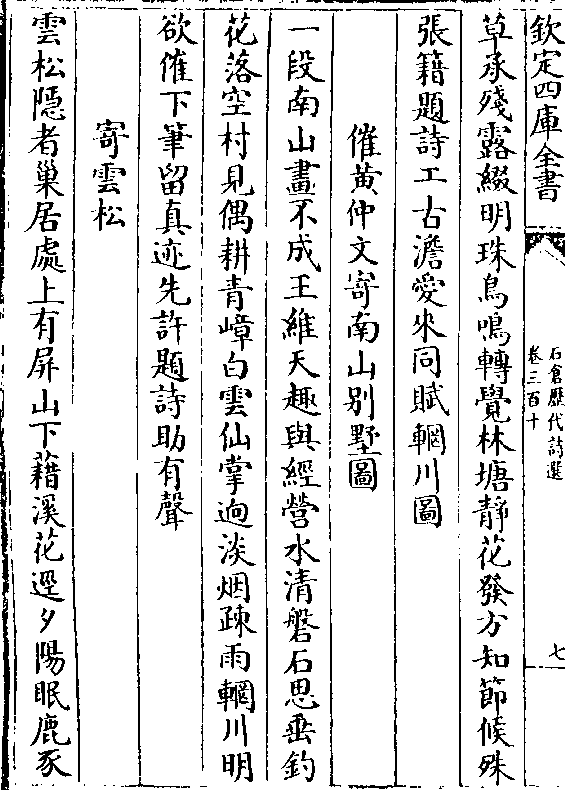 欽定四庫全書
石倉歷代詩選
卷三百十
七
草承殘露綴明珠鳥鳴轉覺林塘靜花發方知節候殊
張籍題詩工古澹愛來同賦輞川圖
催黃仲文寄南山别墅圖
一段南山畫不成王維天趣與經營水清磐石思垂釣
花落空村見偶耕青嶂白雲仙掌逈淡烟疎雨輞川明
欲催下筆留真迹先許題詩助有聲
寄雲松
雲松隠者巢居處上有屏山下藉溪花逕夕陽眠鹿豕